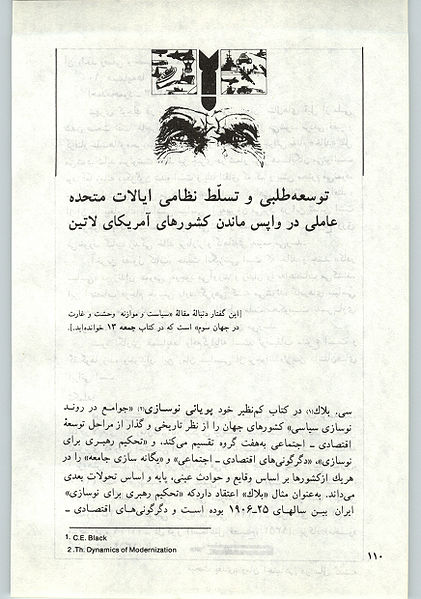 توسعه‌طلبی و تسلّط نظامی ایالات متحده
عاملی در واپس ماندن کشورهای آمریکای لاتین
[این گفتار دنبالهٔ مقالهٔ «سیاست و موازنه وحشت و غارت
در جهان سوم» است که در کتاب جمعه ۱۳ خوانده‌اید.]
سی. بلاک(۱) در کتاب کم‌نظیر خود پویائی نوسازی(۲) «جوامع در روند
نوسازی سیاسی» کشورهای جهان را از نظر تاریخی و گذار از مراحل توسعهٔ
اقتصادی ـ اجتماعی به‌هفت گروه تقسیم می‌کند، و «تحکیم رهبری برای
نوسازی»، «دگرگونی‌های اقتصادی ـ اجتماعی» و «یگانه سازی جامعه» را در
هریك ازکشورها بر اساس وقایع و حوادث عینی، پایه و اساس تحولات بعدی
می‌داند. به‌عنوان مثال «بلاك» اعتقاد داردکه «تحکیم رهبری برای نوسازی»
ایران بین سالهای ۲۵ـ۱۹۰۶ بوده است و دگرگونی‌های اقتصادی ـ
1. C.E. Black
2 .Th. Dynamics of Modernization
۱۱۰